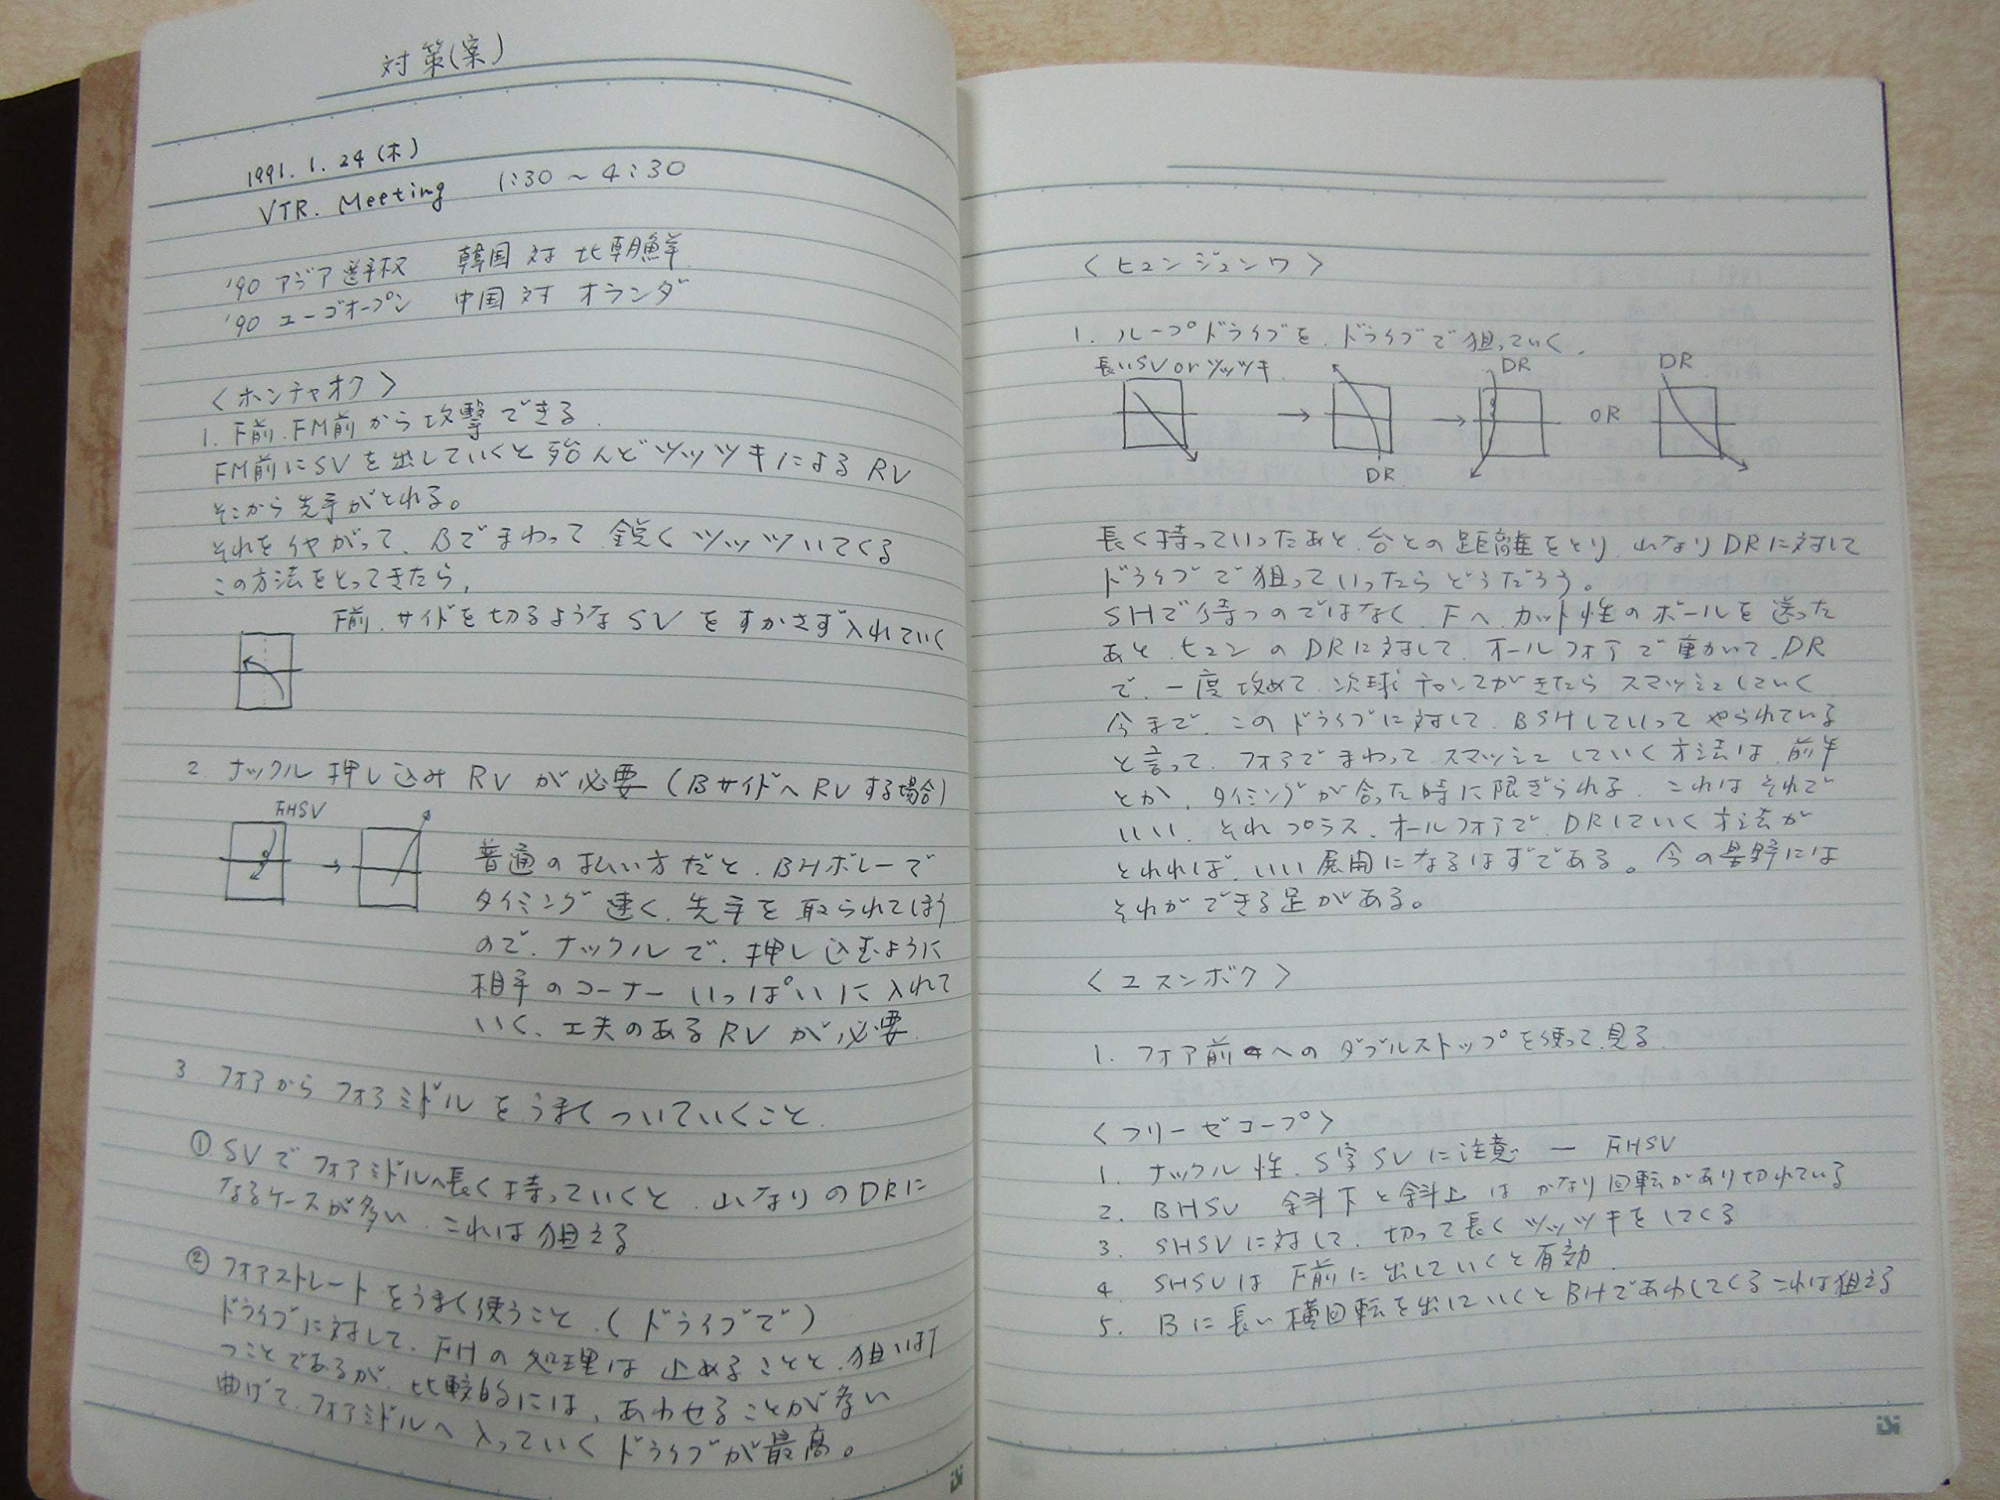 対策(案)
1991. 1. 24 (木)
VTR. Meeting 1:30 〜 4:30
'90 アジア選手权 韓国 対 北朝鮮
'90 ユーゴオープン 中国 対 オランダ
〈ホンチャオク〉
1. F前.FM前から攻撃できる.
FM前にSVを出していくと殆んどツッツキによるRV
そこから先手がとれる。
それをイヤがって、Bでまわって鋭くツッツいてくる
この方法をとってきたら,
F前.サイドを切るようなSVをすかさず入れていく
2. ナックル押し込みRVが必要(BサイドへRVする場合)
FHSV
普通の払い方だと.BHボレーで
タイミング速く.先手を取られてしまう
ので.ナックルで.押し込むように
相手のコーナーいっぱいに入れて
いく、工夫のあるRVが必要.
3. フォアからフォアミドルをうまくついていくこと.
① SVでフォアミドルへ長く持っていくと.山なりのDRに
なるケースが多い.これは狙える
② フォアストレートをうまく使うこと.(ドライブで)
ドライブに対して.FHの処理は止めることと.狙い打
つことであるが.比較的には、あわせることが多い
曲げて.フォアミドルへ入っていくドライブが最高。
〈ヒュンジュンワ〉
1. ループドライブを.ドライブで狙っていく.
長いSV or ツッツキ. → DR → DR OR DR
長く持っていったあと.台との距離をとり.山なりDRに対して
ドライブで狙っていったらどうだろう。
SHで待つのではなく.Fへ.カット性のボールを送った
あと.ヒュンのDRに対して.オールフォアで動いて.DR
で.一度攻めて.次球チャンスがきたらスマッシュしていく
今まで.このドライブに対して.BSHしていってやられている
と言って.フォアでまわってスマッシュしていく方法は.前半
とか.タイミングが合った時に限ぎられる.これはそれで
いい.それプラス.オールフォアで.DRしていく方法が
とれれば.いい展開になるはずである。今の星野には
それができる足がある。
〈ユスンボク〉
1. フォア前へのダブルストップを使って見る.
〈フリーゼコープ〉
1. ナックル性.S字SVに注意 ー FHSV
2. BHSV 斜下と斜上はかなり回転があり切れている
3. SHSVに対して.切って長くツッツキをしてくる
4. SHSVは F前に出していくと有効.
5. Bに長い横回転を出していくとBHであわしてくるこれは狙える